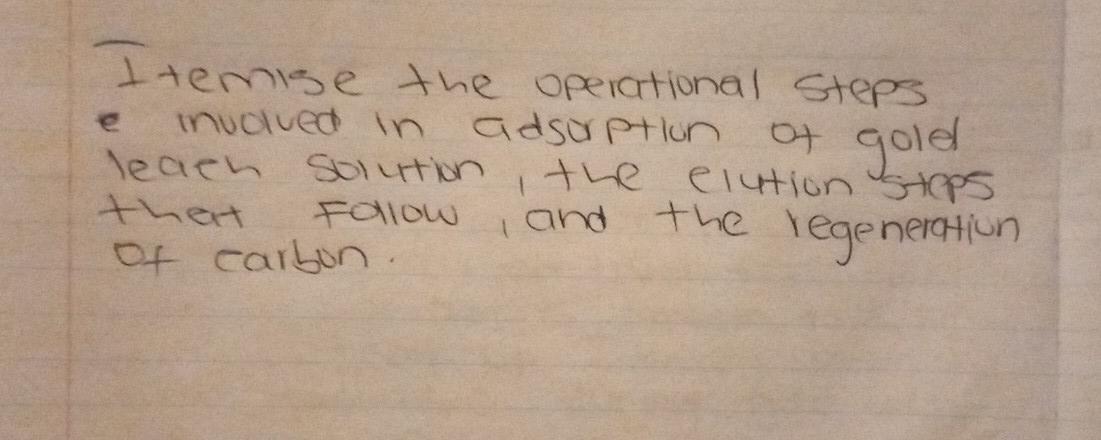 Itemise the operational steps
e involved in adsorption of gold
leach solution, the elution steps
that follow, and the regeneration
of carbon.